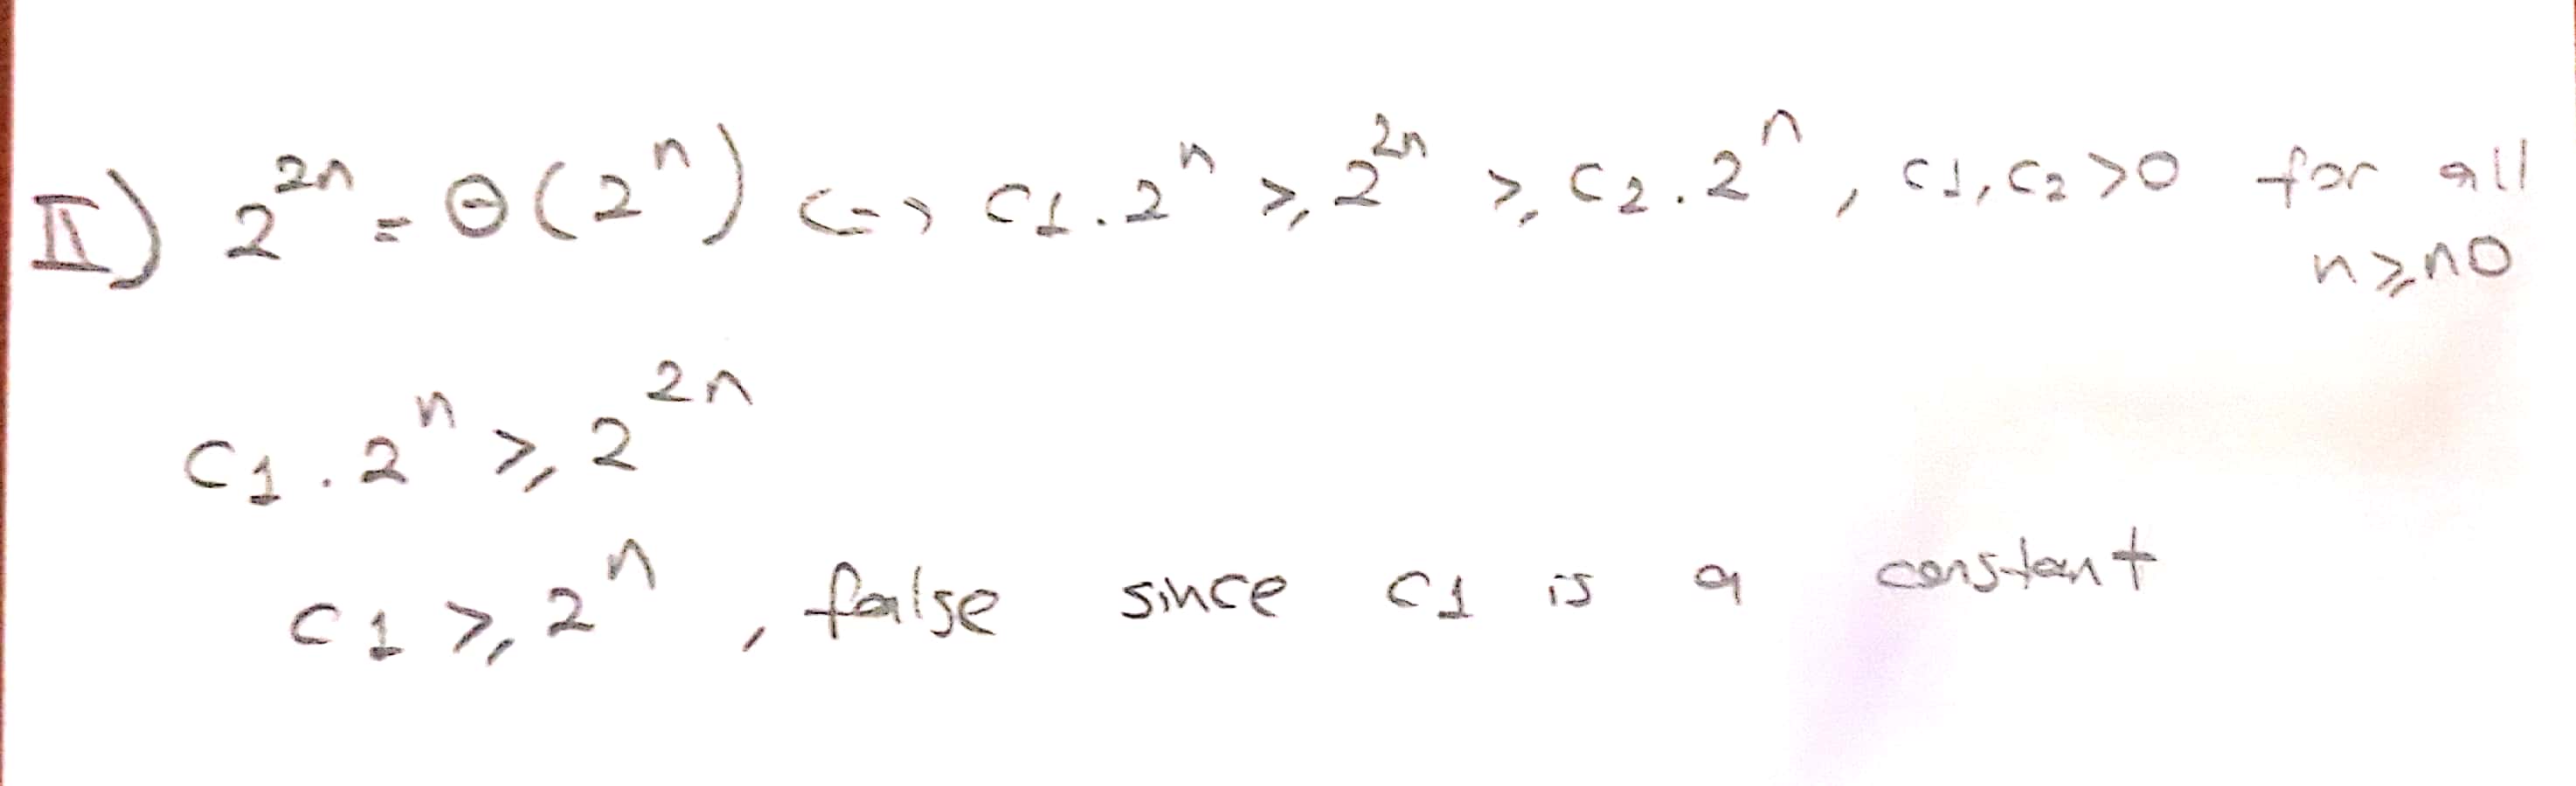 II) 2^{2n} = Θ(2^n) <=> c1.2^n ⩾ 2^{2n} ⩾ c2.2^n, c1, c2 > 0 for all
n ⩾ n0
c1.2^n ⩾ 2^{2n}
c1 ⩾ 2^n, false since c1 is a constant